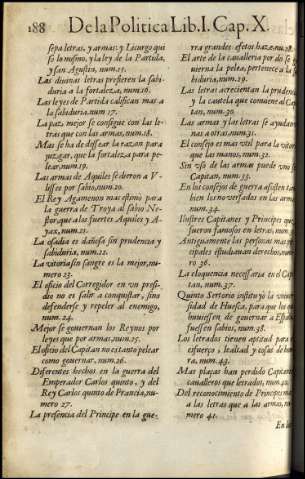 188 De la Politica Lib. I. Cap. X.
sepa letras, y armas: y Licurgo qui
so lo mismo, y la ley de la Partida,
y san Agustin, num.15.
Las diuinas letras prefieren la sabi-
duria a la fortaleza, num.16.
Las leyes de Partida califican mas a
la sabiduria. num 17.
La paz, mejor se consigue con las le-
tras que con las armas, num.18.
Mas se ha de dessear la razon para
juzgar, que la fortaleza para pe-
lear, num.19.
Las armas de Aquiles se dieron a V-
lisses por sabio, num.20.
El Rey Agamenon mas estimò para
la guerra de Troya al sabio Ne-
stor, que a los fuertes Aquiles y A-
yax, num.21.
La osadia es dañosa sin prudencia y
sabiduria, num.22.
La vitoria sin sangre es la mejor, nu-
mero 23.
El oficio del Corregidor en vn presi-
dio no es salir a conquistar, sino
defenderse y repeler al enemigo,
num.24.
Mejor se gouiernan los Reynos por
leyes que por armas, num.25.
El oficio del Capitan no es tanto pelear
como gouernar, num.26.
Diferentes hechos en la guerra del
Emperador Carlos quinto, y del
Rey Carlos quinto de Francia, nu-
mero 27.
La presencia del Principe en la gue-
rra grandes efetos haze, nu.28.
El arte de la caualleria por do se go-
uierna la pelea, pertenece a la sa-
biduria, num.29.
Las letras acrecientan la prudencia
y la cautela que conuiene al Capi-
tan, num.30.
Las armas y las letras se ayudan v-
nas a otras, num.31.
El consejo es mas vtil para la vitoria
que las manos, num.32.
Sin vso de las armas puede vno ser
Capitan, num.33.
En los consejos de guerra assisten tam-
bien los no versados en las armas,
num.34.
Ilustres Capitanes y Principes que
fueron famosos en letras, num.35.
Antiguamente las personas mas pr-
cipales estudiauan derechos, nume-
ro 36.
La eloquencia necessaria es al Capi-
tan, num.37.
Quinto Sertorio instituyò la vniuer-
sidad de Huesca, para que los que
huuiessen de gouernar a España
fuessen sabios, num.38.
Los letrados tienen aptitud para el
esfuerço, lealtad y cosas de honra,
num.39.
Mas plaças han perdido Capitanes
caualleros que letrados, num.40.
Del reconocimiento de Principes mas
a las letras que a las armas, nu-
mero 41.
En los